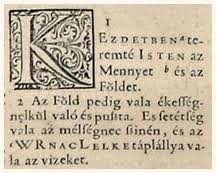 1
KEZDETBEN ᵃ te-
remté ISTEN az
Mennyet ᵇ és az
Földet.
2 Az Föld pedig vala ékesség-
nejkül való és puſta. Es ſetétſég
vala az mélſégnec ſinén, és az
WRnac LELKE táplállya va-
la az vizeket.